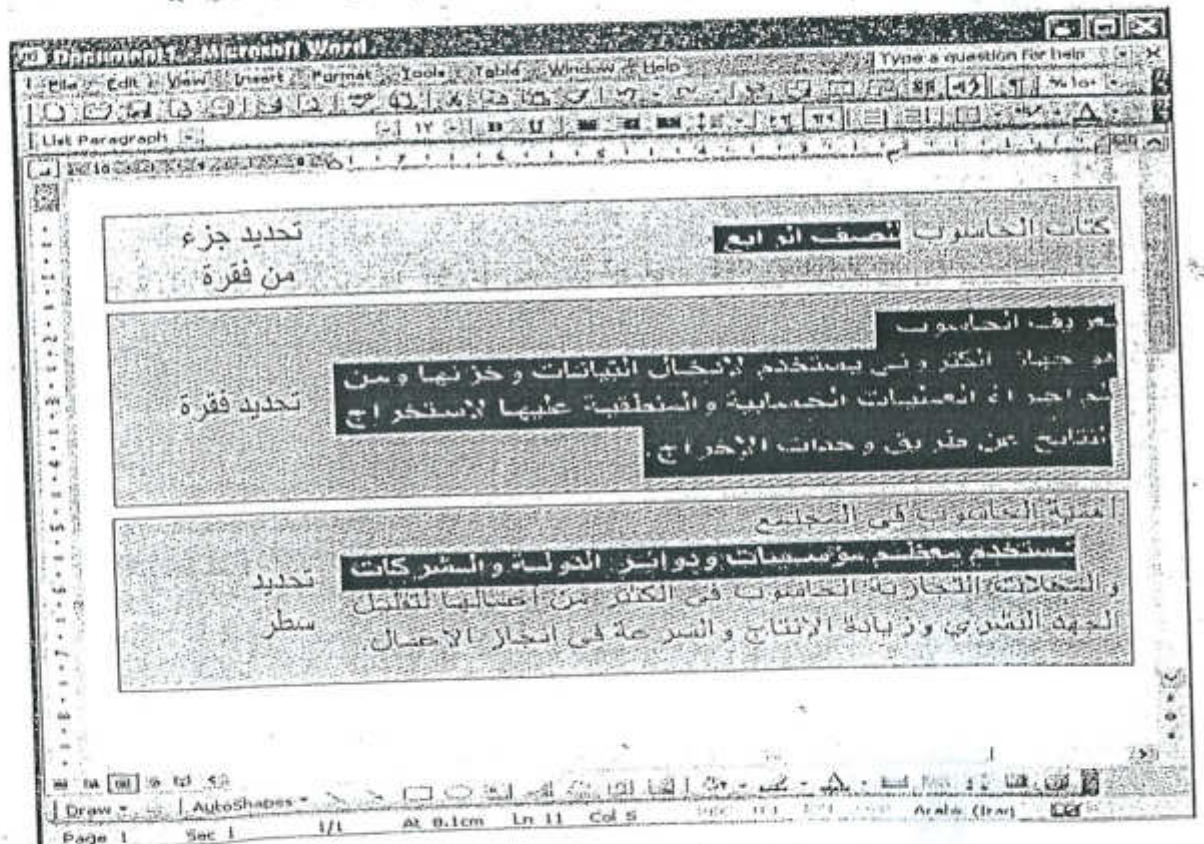 Document1 - Microsoft Word
Type a question for help
File Edit View Insert Format Tools Table Window Help
List Paragraph ١٢
كتاب الحاسوب للصف الرابع
تحديد جزء
من فقرة
تعريف الحاسوب
هو جهاز الكتروني يستخدم لإدخال البيانات وخزنها ومن
ثم اجراء العمليات الحسابية والمنطقية عليها لاستخراج
النتائج عن طريق وحدات الإخراج.
تحديد فقرة
أهمية الحاسوب في المجتمع
تستخدم معظم مؤسسات ودوائر الدولة والشركات
والمحلات التجارية الحاسوب في الكثير من أعمالها لتقليل
الجهد البشري وزيادة الإنتاج والسرعة في انجاز الاعمال.
تحديد
سطر
Draw AutoShapes
Page 1 Sec 1 1/1 At 8.1cm Ln 11 Col 5 Arabic (Iraq)